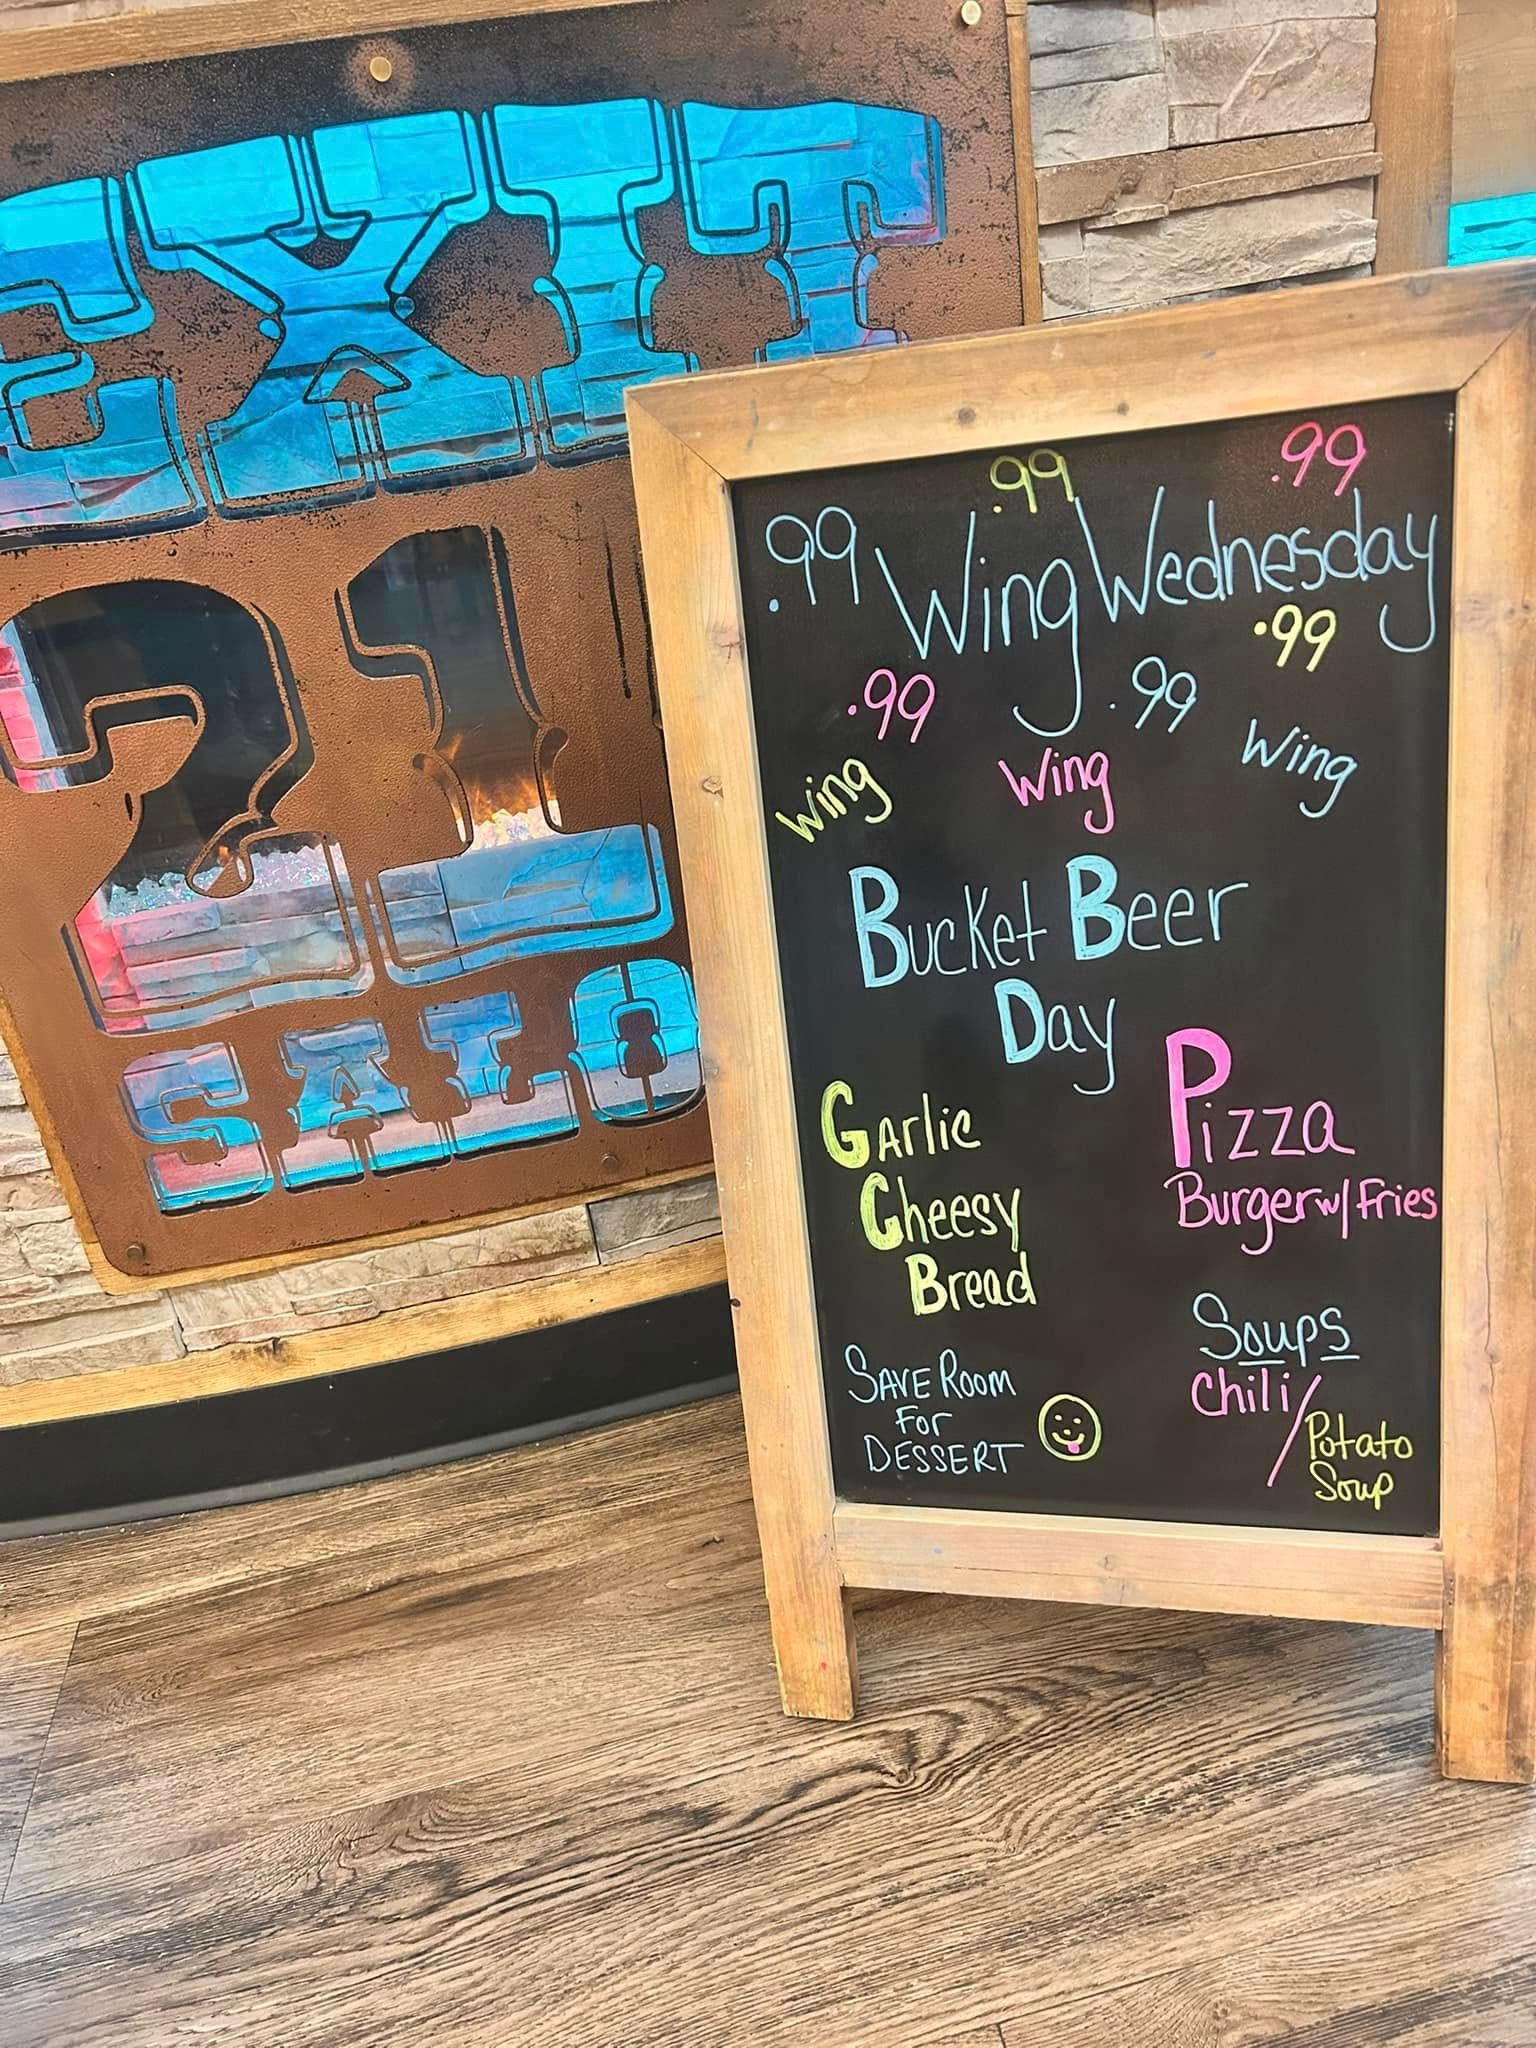 EXIT
21
SALO
.99
.99
.99 Wing Wednesday
.99
.99
.99
Wing
Wing
Wing
Bucket Beer
Day
Garlic
Cheesy
Bread
Pizza
Burger w/ Fries
SAVE ROOM
FOR
DESSERT
Soups
Chili/
Potato
Soup